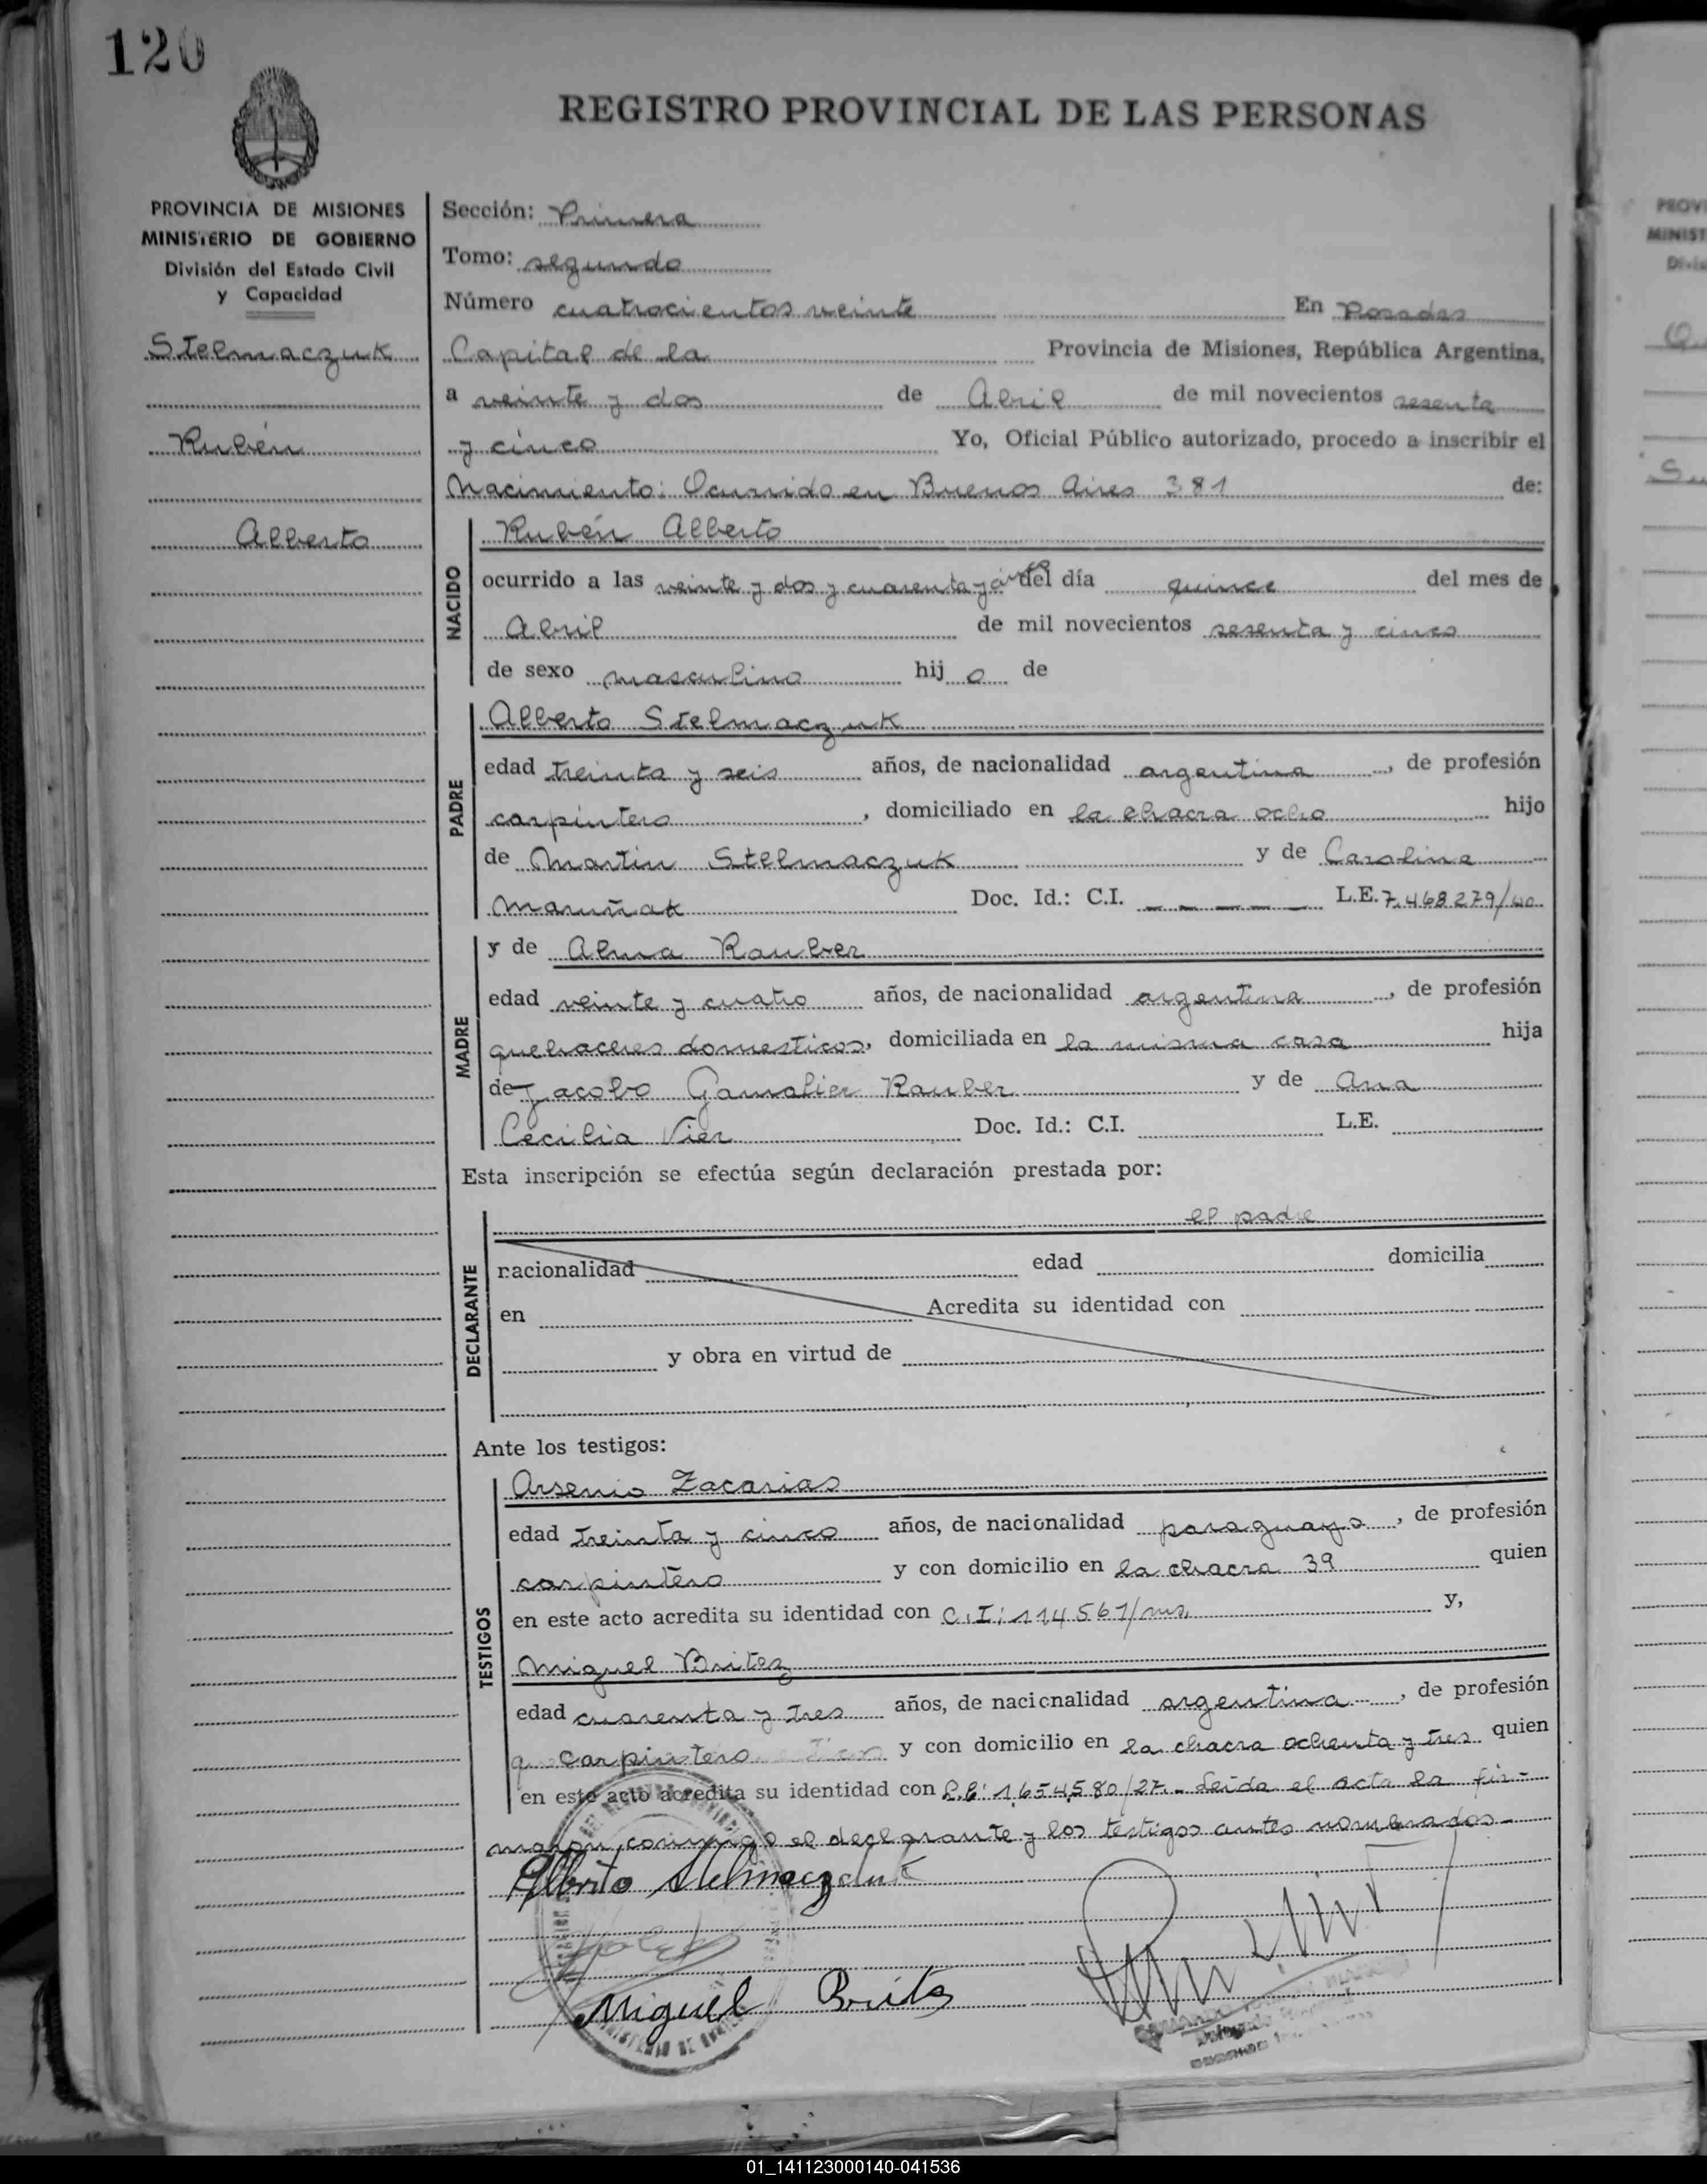 120
REGISTRO PROVINCIAL DE LAS PERSONAS
PROVINCIA DE MISIONES
MINISTERIO DE GOBIERNO
División del Estado Civil
y Capacidad
Stelmaczuk
Rubén
Alberto
Sección: Primera
Tomo: segundo
Número cuatrocientos veinte En Posadas
Capital de la Provincia de Misiones, República Argentina,
a veinte y dos de Abril de mil novecientos sesenta
y cinco Yo, Oficial Público autorizado, procedo a inscribir el
Nacimiento: Ocurrido en Buenos Aires 381 de:
NACIDO
Rubén Alberto
ocurrido a las veinte y dos y cuarenta y cinco del día quince del mes de
Abril de mil novecientos sesenta y cinco
de sexo masculino hij o de
PADRE
Alberto Stelmaczuk
edad treinta y seis años, de nacionalidad argentina, de profesión
carpintero, domiciliado en la chacra ocho hijo
de Martin Stelmaczuk y de Carolina
Maruñak Doc. Id.: C.I. — — — — — L.E. 7.468279/40
MADRE
y de Alma Rauber
edad veinte y cuatro años, de nacionalidad argentina, de profesión
quehaceres domesticos, domiciliada en la misma casa hija
de Jacobo Gamalier Rauber y de Ana
Cecilia Vier Doc. Id.: C.I. L.E.
Esta inscripción se efectúa según declaración prestada por:
DECLARANTE
el padre
nacionalidad edad domicilia
en Acredita su identidad con
y obra en virtud de
Ante los testigos:
TESTIGOS
Arsenio Zacarias
edad treinta y cinco años, de nacionalidad paraguayo, de profesión
carpintero y con domicilio en la chacra 39 quien
en este acto acredita su identidad con C.I: 114567/ms, y,
Miguel Britez
edad cuarenta y tres años, de nacionalidad argentina, de profesión
carpintero y con domicilio en la chacra ochenta y tres quien
en este acto acredita su identidad con L.E: 1.654.580/27 - Leida el acta la fir-
maron conmigo el declarante y los testigos antes nombrados-
Alberto Stelmaczuk
Miguel Britz
01_141123000140-041536